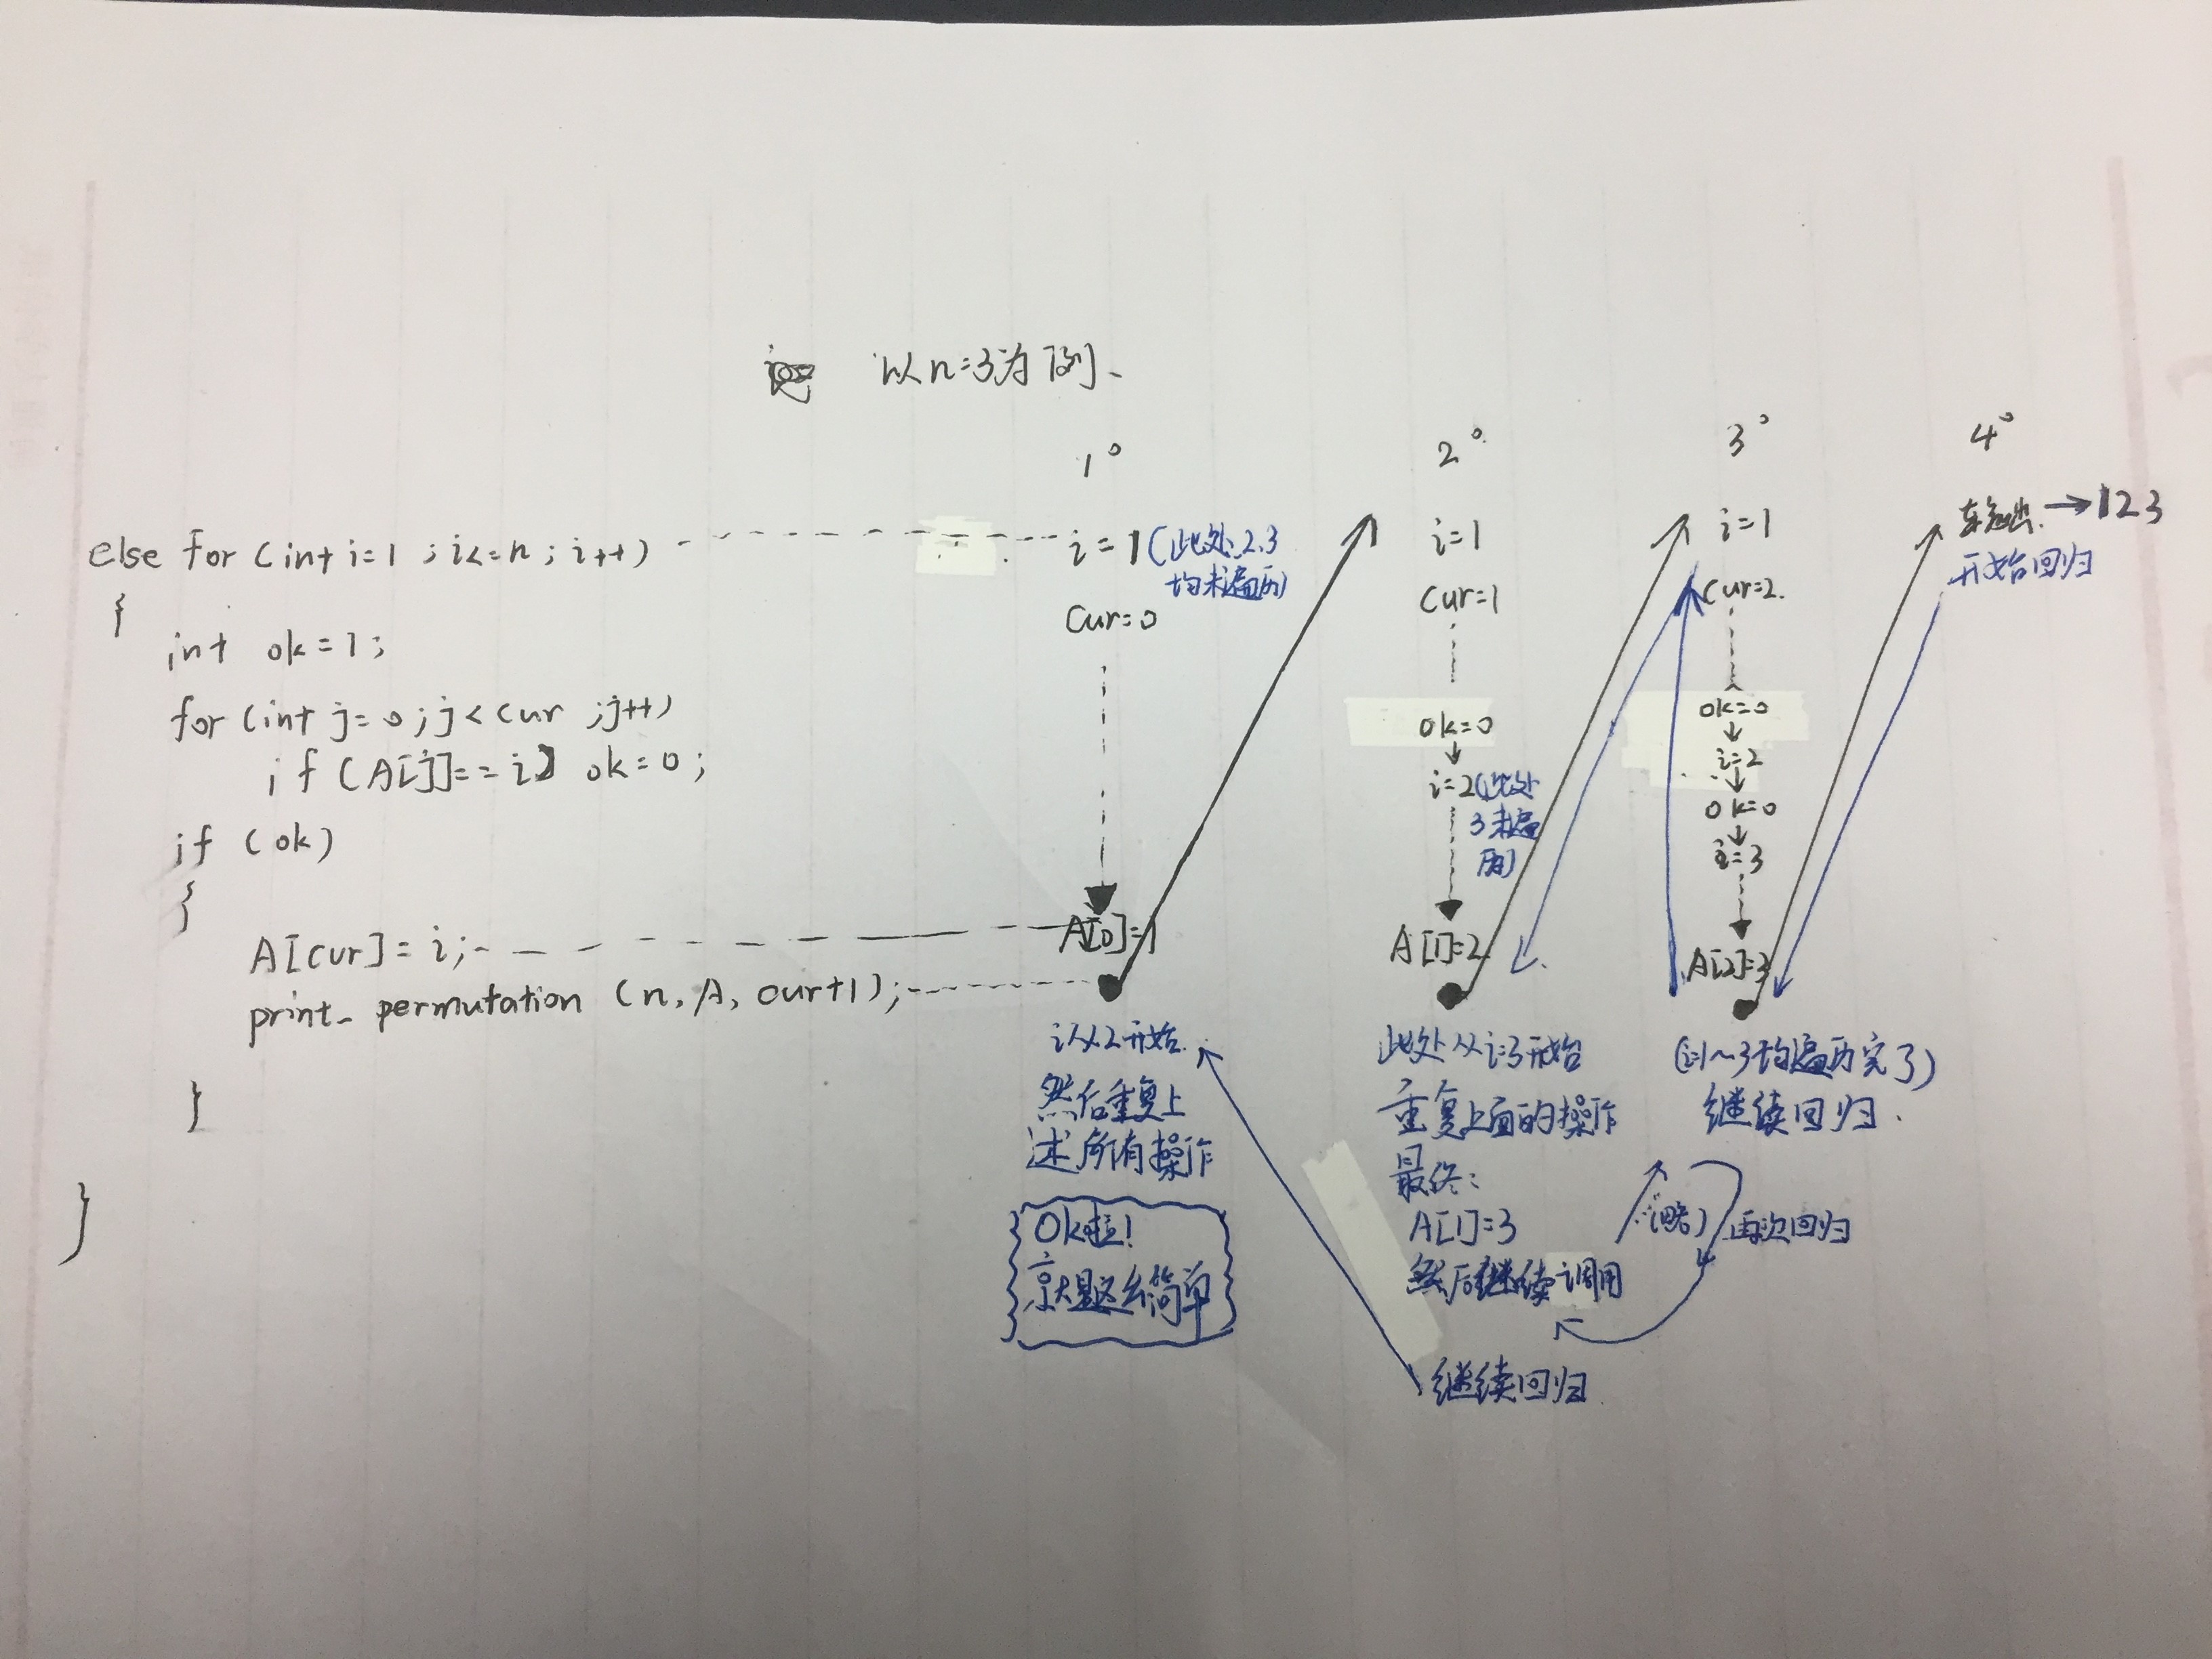 以n=3为例、
else for (int i=1 ; i<=n ; i++)
{
int ok=1;
for (int j=0; j<cur ;j++)
if (A[j]==i) ok=0;
if (ok)
{
A[cur]=i;
print_permutation (n, A, cur+1);
}
}
1°
i=1 (此处2.3
均未遍历)
cur=0
A[0]=1
i从2开始
然后重复上
述所有操作
Ok啦!
就是这么简单
2°
i=1
cur=1
ok=0
i=2 (此处
3未遍
历)
A[1]=2
此处从i=3开始
重复上面的操作
最终:
A[1]=3
然后继续调用
继续回归
3°
i=1
cur=2.
ok=0
i=2
ok=0
i=3
A[2]=3
(i=1~3均遍历完了)
继续回归.
(略)
再次回归
4°
→123
开始回归